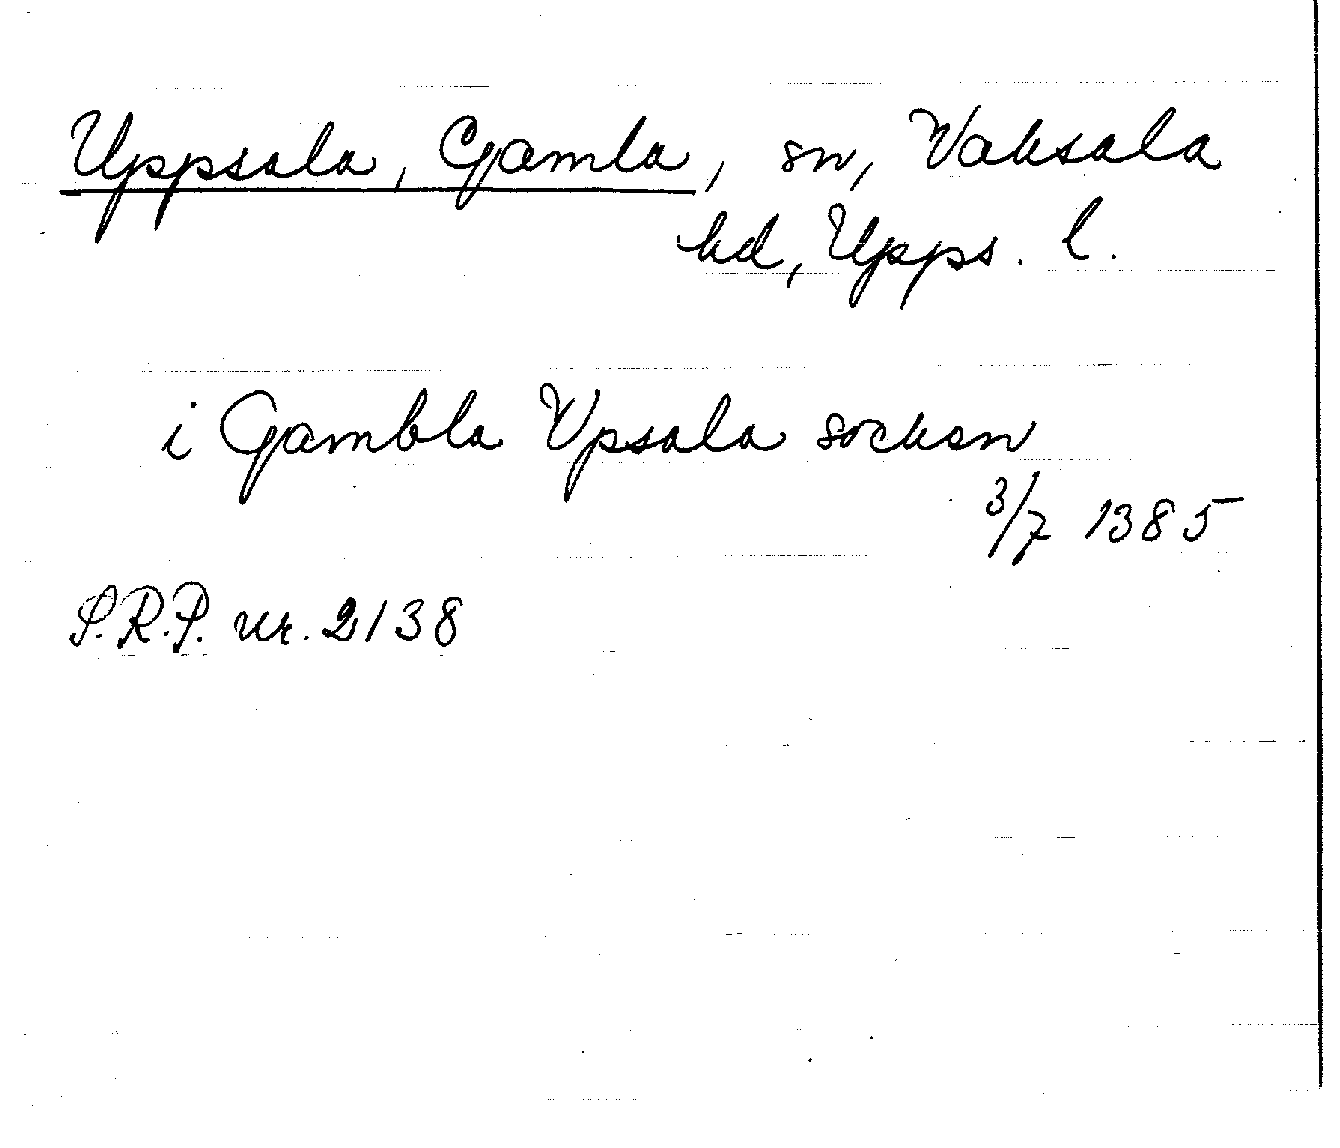 Uppsala, Gamla, sn, Vaksala
hd, Upps. l.
i Gambla Vpsala socken
3/7 1385
S.R.P. nr. 2138